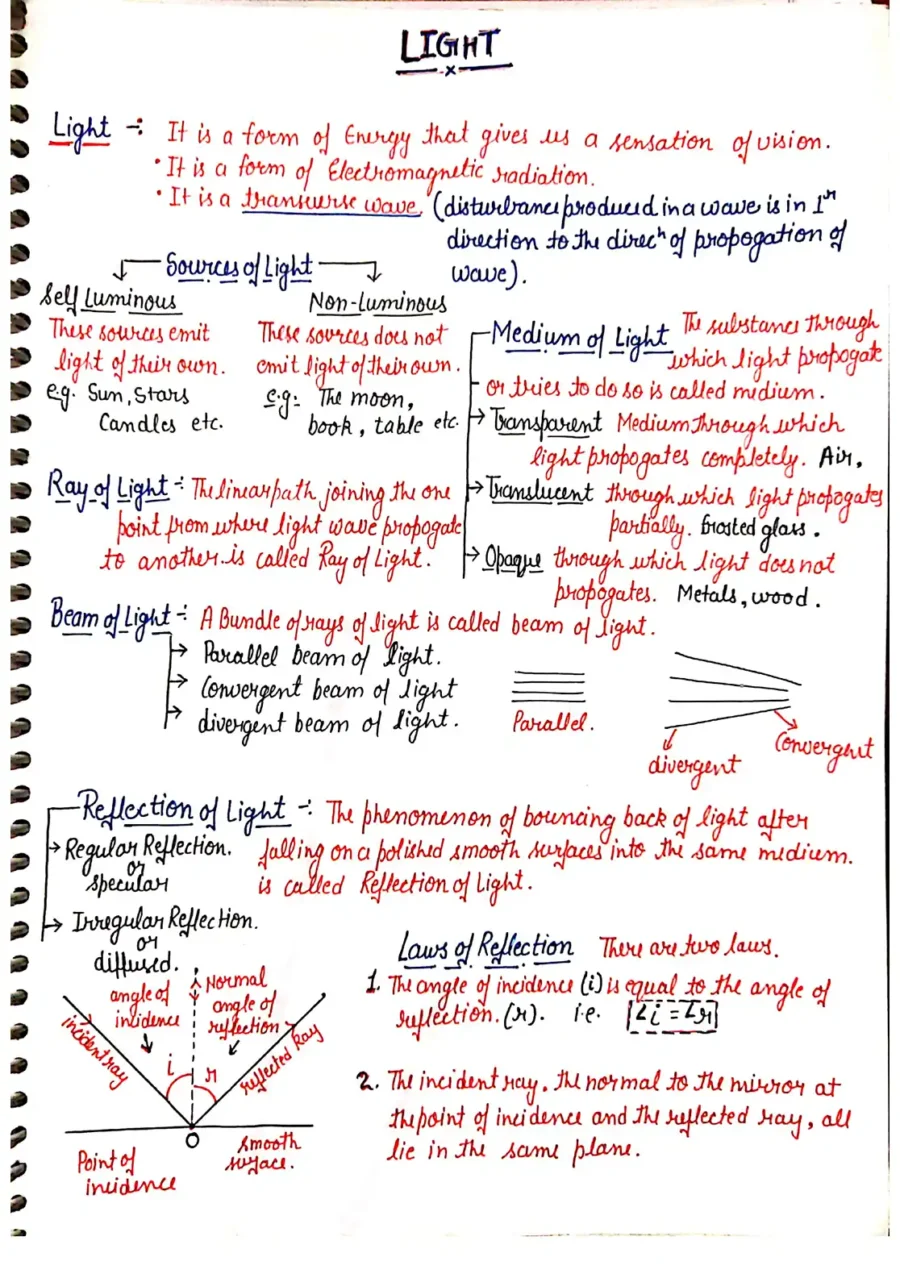 LIGHT
Light -: It is a form of Energy that gives us a sensation of vision.
• It is a form of Electromagnetic radiation.
• It is a transverse wave. (disturbance produced in a wave is in 1r
direction to the direcn of propogation of
wave).
Sources of Light
Self Luminous
These sources emit
light of their own.
e.g. Sun, Stars
Candles etc.
Non-Luminous
These sources does not
emit light of their own.
e.g: The moon,
book, table etc.
Medium of Light The substance through
which light propogate
or tries to do so is called midium.
→ Transparent Medium through which
light propogates completely. Air,
→ Translucent through which light propogates
partially. frosted glass.
→ Opaque through which light does not
propogates. Metals, wood.
Ray of Light -: The linear path joining the one
point from where light wave propogate
to another is called Ray of Light.
Beam of Light -: A Bundle of rays of light is called beam of light.
→ Parallel beam of light.
→ Convergent beam of light
→ divergent beam of light.
Parallel.
divergent
Convergent
Reflection of Light -: The phenomenon of bouncing back of light after
falling on a polished smooth surfaces into the same midium.
is called Reflection of Light.
→ Regular Reflection.
or
specular
→ Irregular Reflection.
or
diffused.
Normal
angle of
incidence
angle of
reflection
incident ray
reflected Ray
i
r
O
Point of
incidence
smooth
surface.
Laws of Reflection There are two laws.
1. The angle of incidence (i) is equal to the angle of
reflection. (r). i.e. ∠i = ∠r
2. The incident ray, the normal to the mirror at
the point of incidence and the reflected ray, all
lie in the same plane.